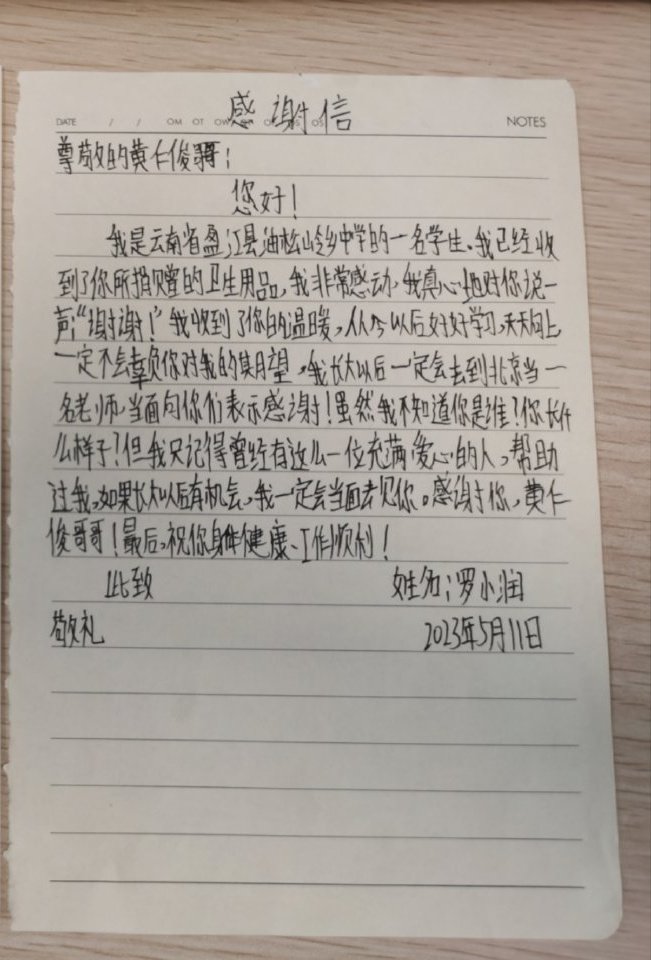 感谢信
DATE / / OM OT OW OS NOTES
尊敬的黄仁俊哥:
您好!
我是云南省盈江县油松岭乡中学的一名学生。我已经收
到了你所捐赠的卫生用品,我非常感动,我真心地对你说一
声:“谢谢!”我收到了你的温暖,从今以后好好学习,天天向上
一定不会辜负你对我的期望,我长大以后一定会去到北京当一
名老师,当面向你们表示感谢!虽然我不知道你是谁?你长什
么样子?但我只记得曾经有这么一位充满爱心的人,帮助
过我,如果长大以后有机会,我一定会当面去见你。感谢你,黄仁
俊哥哥!最后,祝你身体健康、工作顺利!
此致 姓名:罗小润
敬礼 2023年5月11日